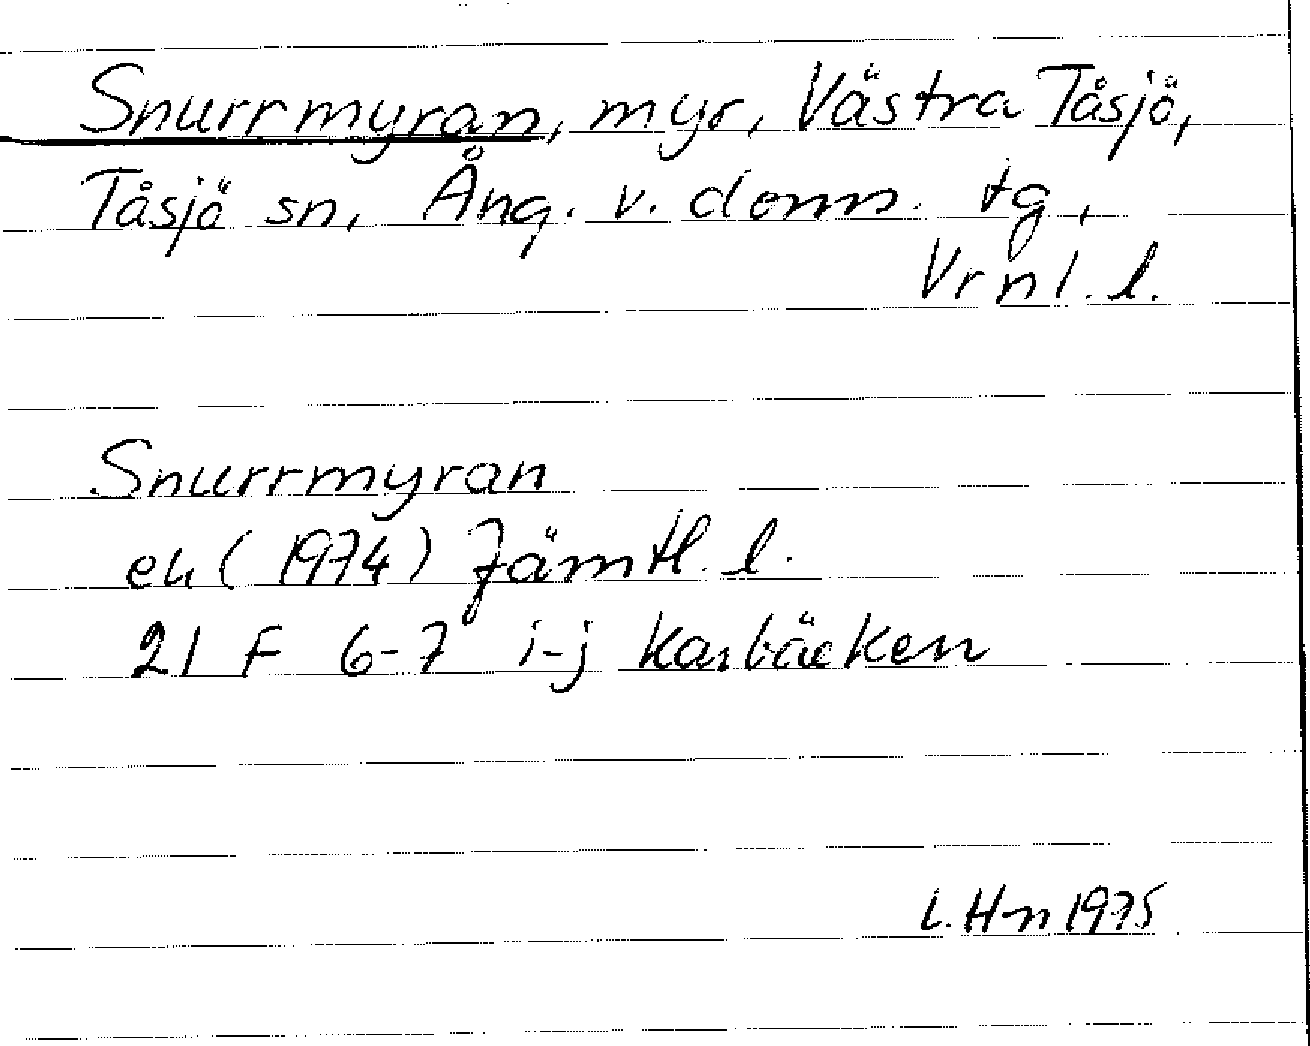 Snurrmyran, myr, Västra Tåsjö,
Tåsjö sn, Ång. v. doms. tg,
Vrnl. l.
Snurrmyran
ek (1974) Jämtl. l.
21 F 6-7 i-j Karbäcken
L. Hn 1975